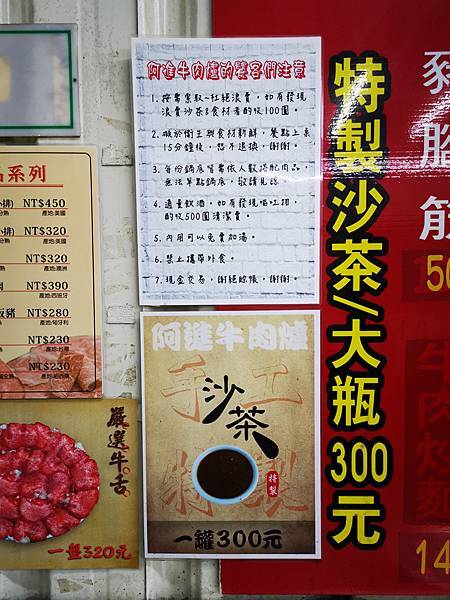 阿進牛肉爐的饕客們注意
1. 按需索取~杜絕浪費,如有發現
浪費沙茶&食材者酌收100圓。
2. 礙於衛生與食材新鮮,餐點上桌
15分鐘後,恕不退換,謝謝。
3. 每份鍋底皆需依人數搭配肉品,
無法單點鍋底,敬請見諒。
4. 適量飲酒,如有發現嘔吐物,
酌收500圓清潔費。
5. 內用可以免費加湯。
6. 禁止攜帶外食。
7. 現金交易,謝絕賒帳,謝謝。
品系列
NT$450
產地:美國
NT$320
產地:美國
NT$320
產地:澳洲
NT$390
產地:西班牙
NT$280
產地:匈牙利
NT$230
產地:台灣
NT$230
嚴選牛舌
一盤320元
阿進牛肉爐
手工
特製
沙茶
特製
一罐300元
特製沙茶/大瓶300元
豬腦
筋
50
牛肉炒麵
14